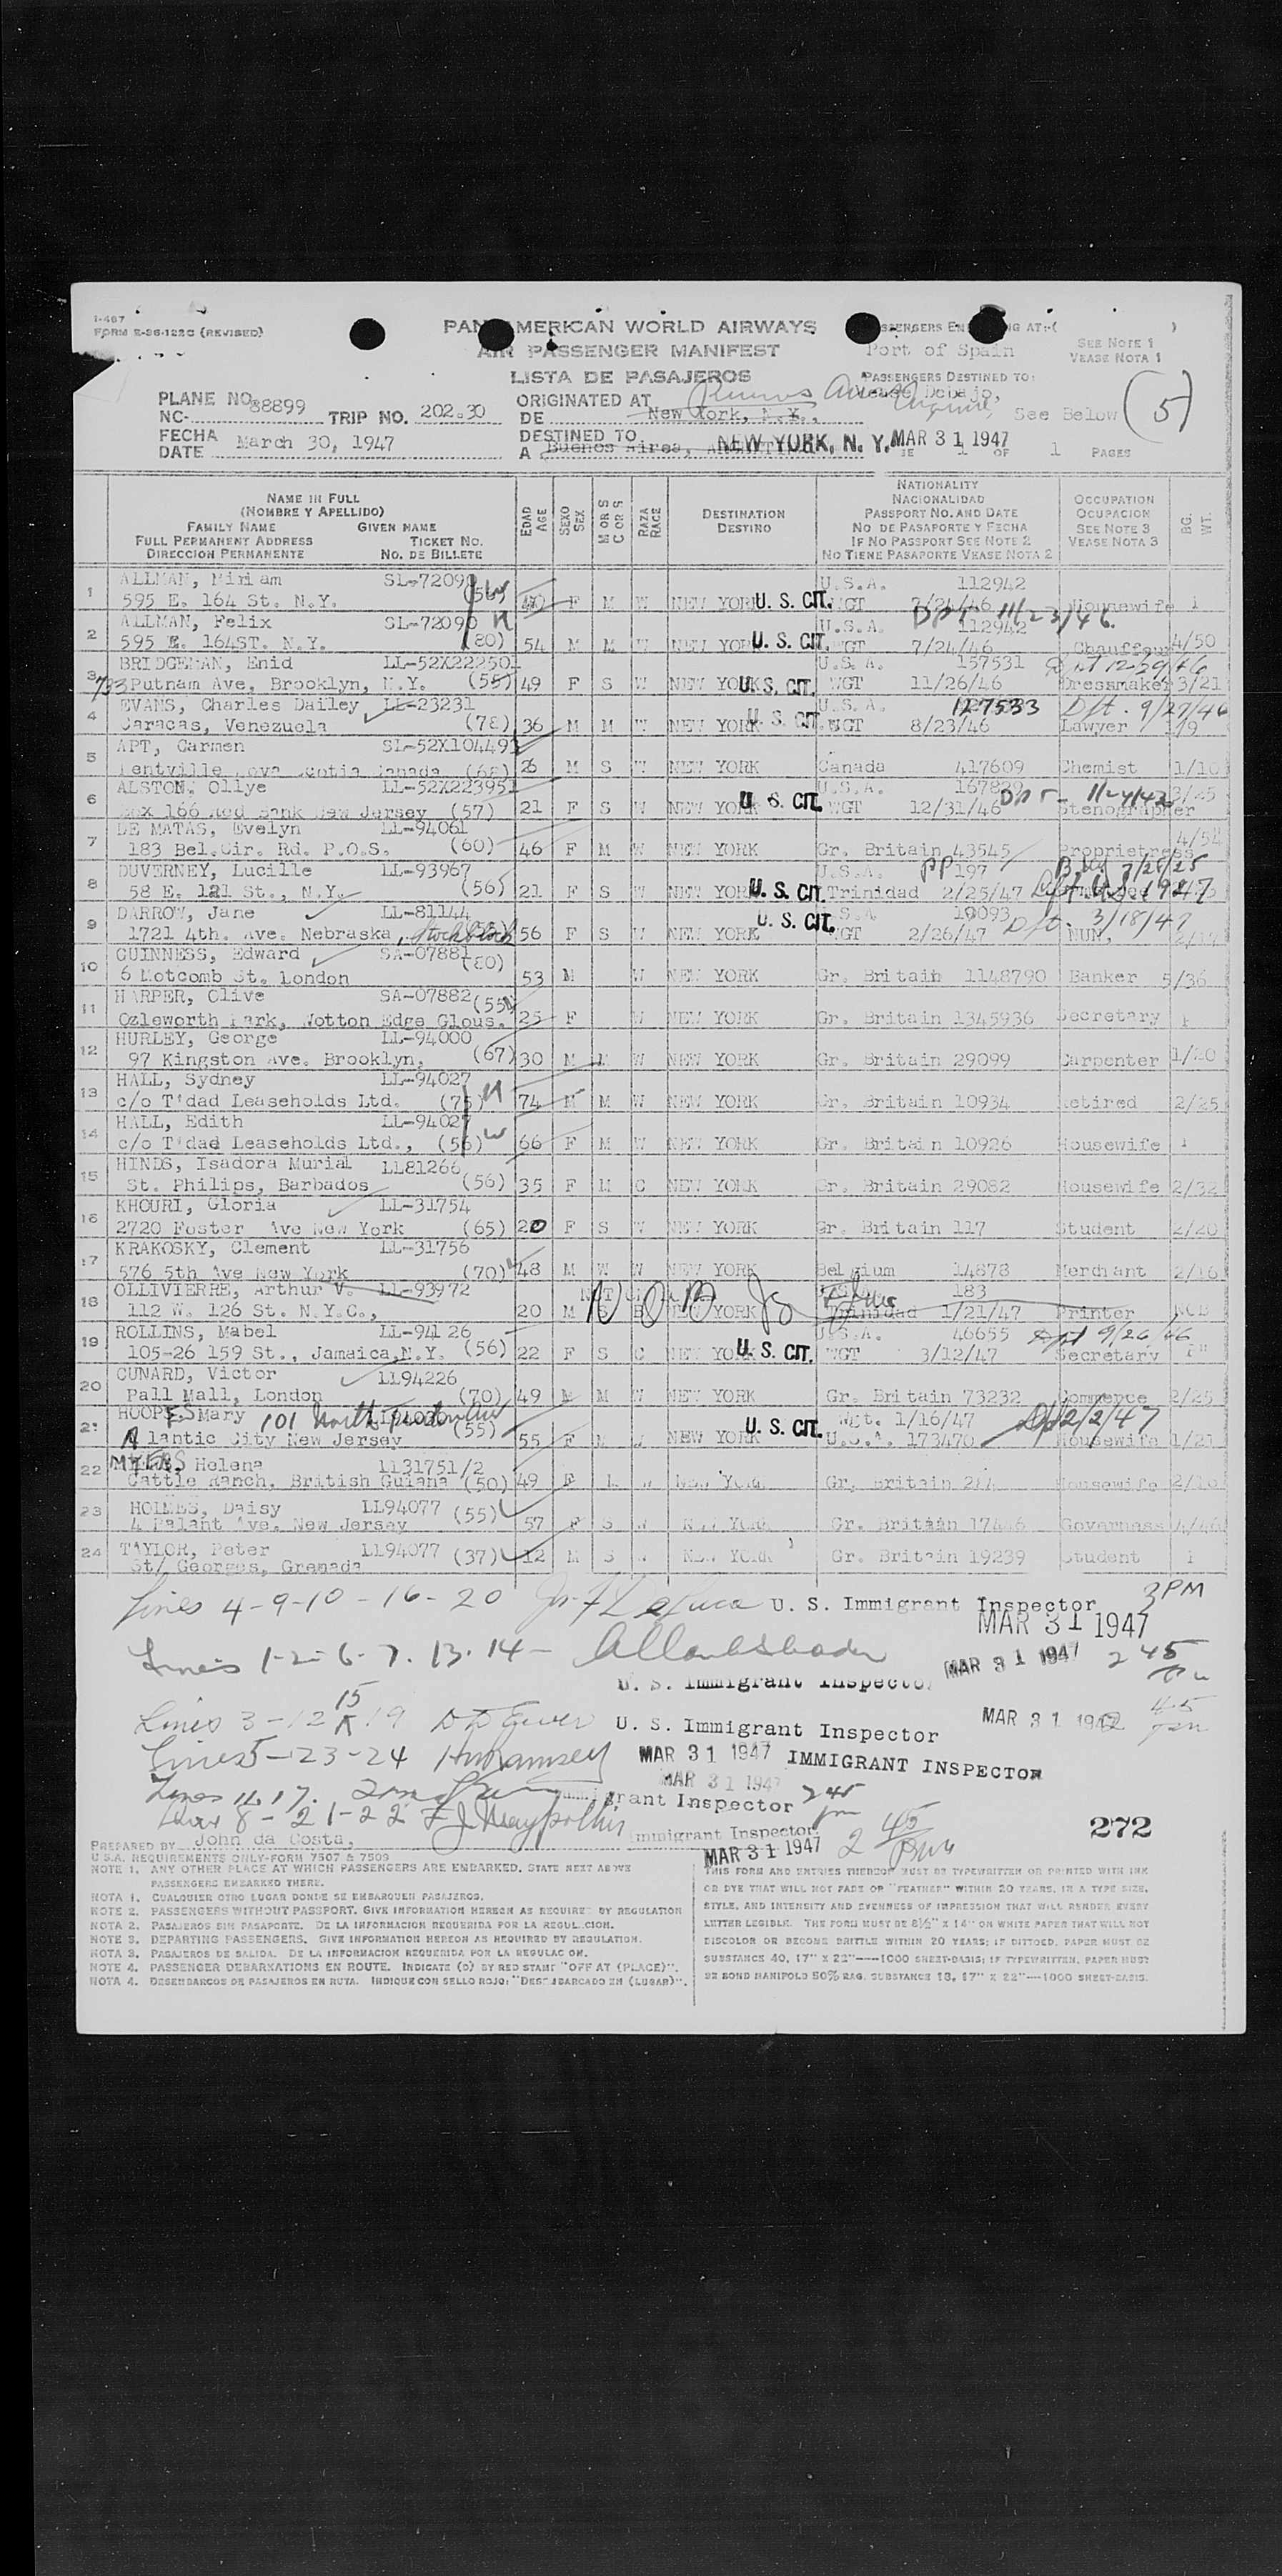 I-467
FORM E-96-122C (REVISED)
PAN AMERICAN WORLD AIRWAYS
AIR PASSENGER MANIFEST
LISTA DE PASAJEROS
Port of Spain
SEE NOTE 1
VEASE NOTA 1
PASSENGERS DESTINED TO:
PLANE NO. NC- 88899 TRIP NO. 202.30
ORIGINATED AT
DE New York, N.Y.,
See Below (5)
FECHA
DATE March 30, 1947
DESTINED TO
A Buenos Aires, NEW YORK, N. Y. MAR 31 1947 1 OF 1 PAGES
NAME IN FULL
(NOMBRE Y APELLIDO)
FAMILY NAME GIVEN NAME
FULL PERMANENT ADDRESS TICKET NO.
DIRECCION PERMANENTE NO. DE BILLETE
EDAD AGE
SEXO SEX
M OR S C OR S
RAZA RACE
DESTINATION
DESTINO
NATIONALITY
NACIONALIDAD
PASSPORT NO. AND DATE
NO. DE PASAPORTE Y FECHA
IF NO PASSPORT SEE NOTE 2
NO TIENE PASAPORTE VEASE NOTA 2
OCCUPATION
OCUPACION
SEE NOTE 3
VEASE NOTA 3
BG. WT.
1 ALLMAN, Miriam U.S.A. 112942
595 E. 164 St. N.Y. F M W NEW YORK U. S. CIT. WGT 7/24/46 Housewife 1
2 ALLMAN, Felix SL-72090 U.S.A. 112942 Dpt 11/23/46
595 E. 164ST. N.Y. (80) 54 M M W NEW YORK U. S. CIT. WGT 7/24/46 Chauffeur 4/50
3 BRIDGEMAN, Enid LL-52X222501 U.S.A. 157531
733 Putnam Ave, Brooklyn, N.Y. (55) 49 F S W NEW YORK U. S. CIT. WGT 11/26/46 Dressmaker 3/21
4 EVANS, Charles Dailey LL-23231 U.S.A. 127533 Dft. 9/27/46
Caracas, Venezuela (78) 36 M M W NEW YORK U. S. CIT. WGT 8/23/46 Lawyer 19
5 APT, Carmen SL-52X104491
Kentville Nova Scotia Canada (68) 26 M S W NEW YORK Canada 417609 Chemist 1/10
6 ALSTON, Ollye LL-52X223951 U.S.A.
Box 166 Red Bank New Jersey (57) 21 F S W NEW YORK U. S. CIT. WGT 12/31/46 Stenographer 3/25
7 DE MATAS, Evelyn LL-94061
183 Bel.Cir. Rd. P.O.S. (60) 46 F M W NEW YORK Gr. Britain 43545 Proprietress
8 DUVERNEY, Lucille LL-93967 U.S.A. PP 197 7/28/25
58 E. 121 St., N.Y. (56) 21 F S W NEW YORK U. S. CIT. Trinidad 2/25/47
9 DARROW, Jane LL-81144 U.S.A. 19093 Dft. 3/18/47
1721 4th. Ave. Nebraska, 56 F S W NEW YORK U. S. CIT. WGT 2/26/47 NUN,
10 GUINNESS, Edward SA-07881 (80)
6 Motcomb St. London 53 M W NEW YORK Gr. Britain 1148790 Banker 5/36
11 HARPER, Olive SA-07882 (55)
Ozleworth Park, Wotton Edge Glous. 25 F W NEW YORK Gr. Britain 1345936 Secretary 1
12 HURLEY, George LL-94000
97 Kingston Ave. Brooklyn, (67) 30 M M W NEW YORK Gr. Britain 29099 Carpenter 1/20
13 HALL, Sydney LL-94027
c/o T'dad Leaseholds Ltd. (75) 74 M M W NEW YORK Gr. Britain 10934 Retired 2/25
14 HALL, Edith LL-94027
c/o T'dad Leaseholds Ltd., (56) 66 F M W NEW YORK Gr. Britain 10926 Housewife 1
15 HINDS, Isadora Murial LL81266
St. Philips, Barbados (56) 35 F M C NEW YORK Gr. Britain 29082 Housewife 2/32
16 KHOURI, Gloria LL-31754
2720 Foster Ave New York (65) 20 F S W NEW YORK Gr. Britain 117 Student 2/20
17 KRAKOSKY, Clement LL-31756
576 5th Ave New York (70) 48 M W W NEW YORK Belgium 14878 Merchant 2/16
18 OLLIVIERRE, Arthur V. LL-93972 183
112 W. 126 St. N.Y.C., 20 M S B NEW YORK Trinidad 1/21/47 Printer NOB
19 ROLLINS, Mabel LL-94126 U.S.A. 46655 9/26/46
105-26 159 St., Jamaica, N.Y. (56) 22 F S C NEW YORK U. S. CIT. WGT 3/12/47 Secretary
20 CUNARD, Victor LL94226
Pall Mall, London (70) 49 M M W NEW YORK Gr. Britain 73232 Commerce 2/25
21 HOOPES Mary 101 North Wgt. 1/16/47 2/2/47
Atlantic City New Jersey (55) 55 F M W NEW YORK U. S. CIT. U.S.A. 173470 Housewife 1/21
22 MYERS Helena LL31751/2
Cattle Ranch, British Guiana (50) 49 F NEW YORK Gr. Britain Housewife 2/16
23 HOLMES, Daisy LL94077 (55)
4 Palant Ave. New Jersey 57 F S W NEW YORK Gr. Britain Governess
24 TAYLOR, Peter LL94077 (37) 12 M S W NEW YORK Gr. Britain 19239 Student 1
St/ Georges, Grenada
Lines 4-9-10-16-20 U. S. Immigrant Inspector 3PM
MAR 31 1947
Lines 1-2-6-7-13-14- MAR 31 1947 2 45
U. S. Immigrant Inspector
Lines 3-12 15 19 U. S. Immigrant Inspector MAR 31 1947
Lines 5-23-24 MAR 31 1947 IMMIGRANT INSPECTOR
MAR 31 1947
Lines 11, 17. Immigrant Inspector 2 45
Lines 8-21-22 Immigrant Inspector
MAR 31 1947 2 45
272
PREPARED BY John da Costa,
U.S.A. REQUIREMENTS ONLY-FORM 7507 & 7509
NOTE 1. ANY OTHER PLACE AT WHICH PASSENGERS ARE EMBARKED, STATE NEXT ABOVE
PASSENGERS EMBARKED THERE.
NOTA 1. CUALQUIER OTRO LUGAR DONDE SE EMBARQUEN PASAJEROS.
NOTE 2. PASSENGERS WITHOUT PASSPORT. GIVE INFORMATION HEREON AS REQUIRED BY REGULATION
NOTA 2. PASAJEROS SIN PASAPORTE. DE LA INFORMACION REQUERIDA POR LA REGULACION.
NOTE 3. DEPARTING PASSENGERS. GIVE INFORMATION HEREON AS REQUIRED BY REGULATION.
NOTA 3. PASAJEROS DE SALIDA. DE LA INFORMACION REQUERIDA POR LA REGULACION.
NOTE 4. PASSENGER DEBARKATIONS EN ROUTE. INDICATE (D) BY RED STAMP "OFF AT (PLACE)".
NOTA 4. DESEMBARCOS DE PASAJEROS EN RUTA. INDIQUE CON SELLO ROJO: "DESEMBARCADO EN (LUGAR)".
THIS FORM AND ENTRIES THEREON MUST BE TYPEWRITTEN OR PRINTED WITH INK
OR DYE THAT WILL NOT FADE OR "FEATHER" WITHIN 20 YEARS, IN A TYPE SIZE,
STYLE, AND INTENSITY AND EVENNESS OF IMPRESSION THAT WILL RENDER EVERY
LETTER LEGIBLE. THE FORM MUST BE 8½" X 14" ON WHITE PAPER THAT WILL NOT
DISCOLOR OR BECOME BRITTLE WITHIN 20 YEARS; IF DITTOED, PAPER MUST BE
SUBSTANCE 40, 17" X 22"—1000 SHEET-BASIS; IF TYPEWRITTEN, PAPER MUST
BE BOND MANIFOLD 50% RAG, SUBSTANCE 13, 17" X 22"—1000 SHEET-BASIS.